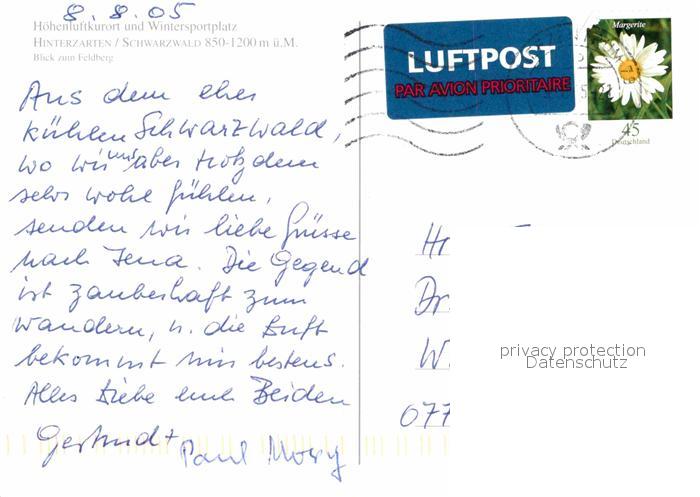 8.8.05
Höhenluftkurort und Wintersportplatz
HINTERZARTEN / SCHWARZWALD 850-1200 m ü.M.
Blick zum Feldberg
Aus dem eher
kühlen Schwarzwald,
wo wir uns aber trotzdem
sehr wohl fühlen,
senden wir liebe Grüsse
nach Jena. Die Gegend
ist zauberhaft zum
wandern, u. die Luft
bekommt mir bestens.
Alles Liebe euch Beiden
Gertrud +
Paul
LUFTPOST
PAR AVION PRIORITAIRE
Margerite
45
Deutschland
H
Dr.
W
077
privacy protection
Datenschutz